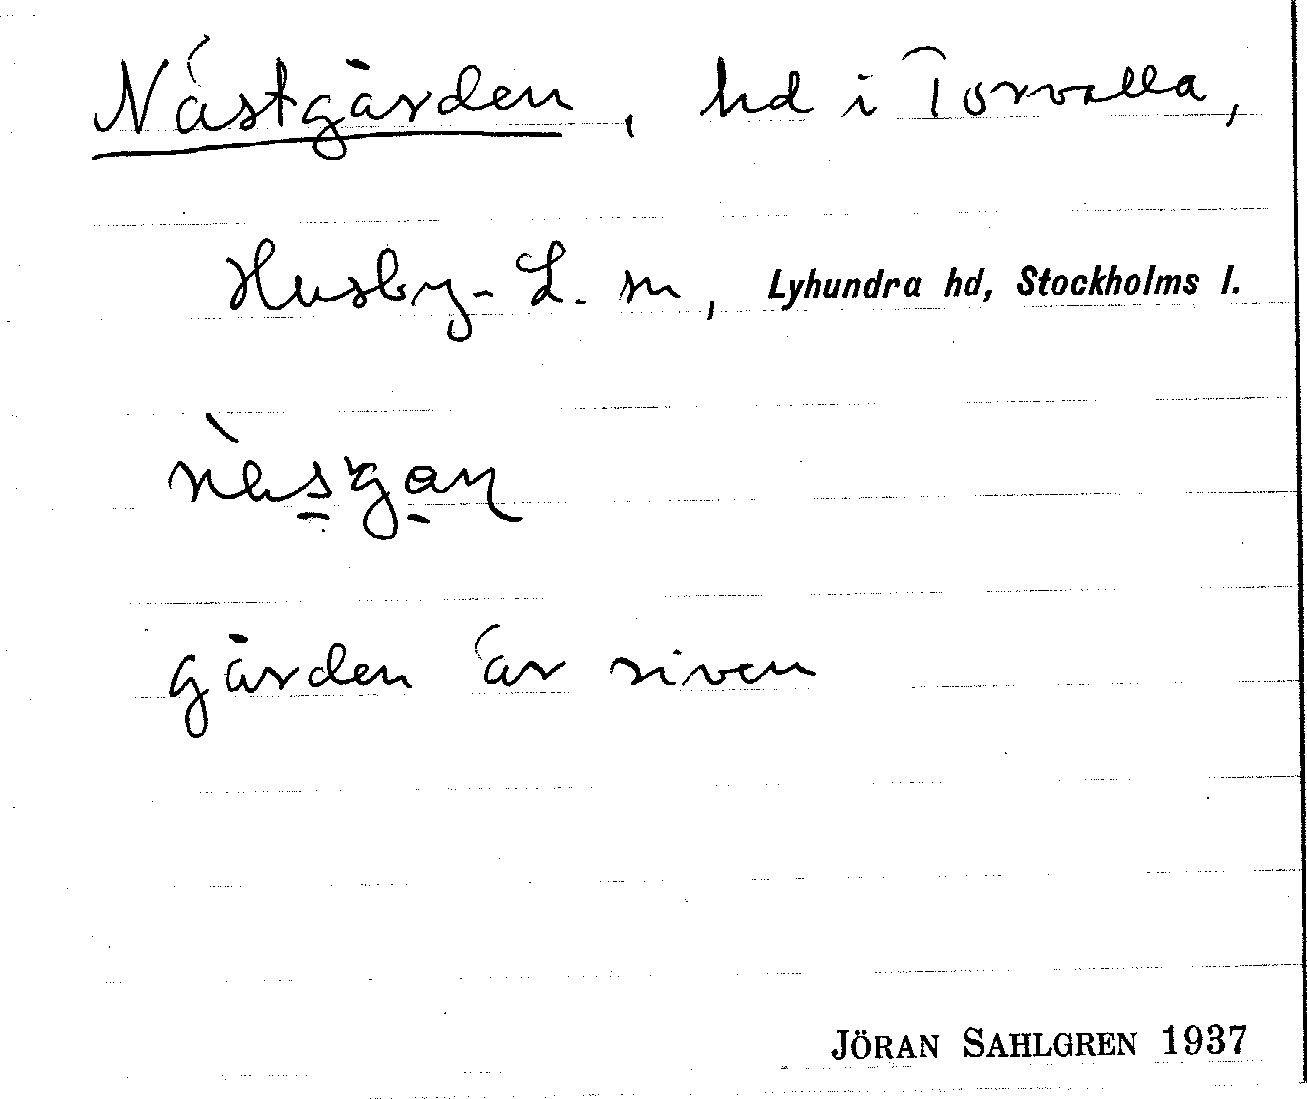 Nästgården, hd i Torvalla,
Husby-L. sn, Lyhundra hd, Stockholms l.
gården är riven
JÖRAN SAHLGREN 1937